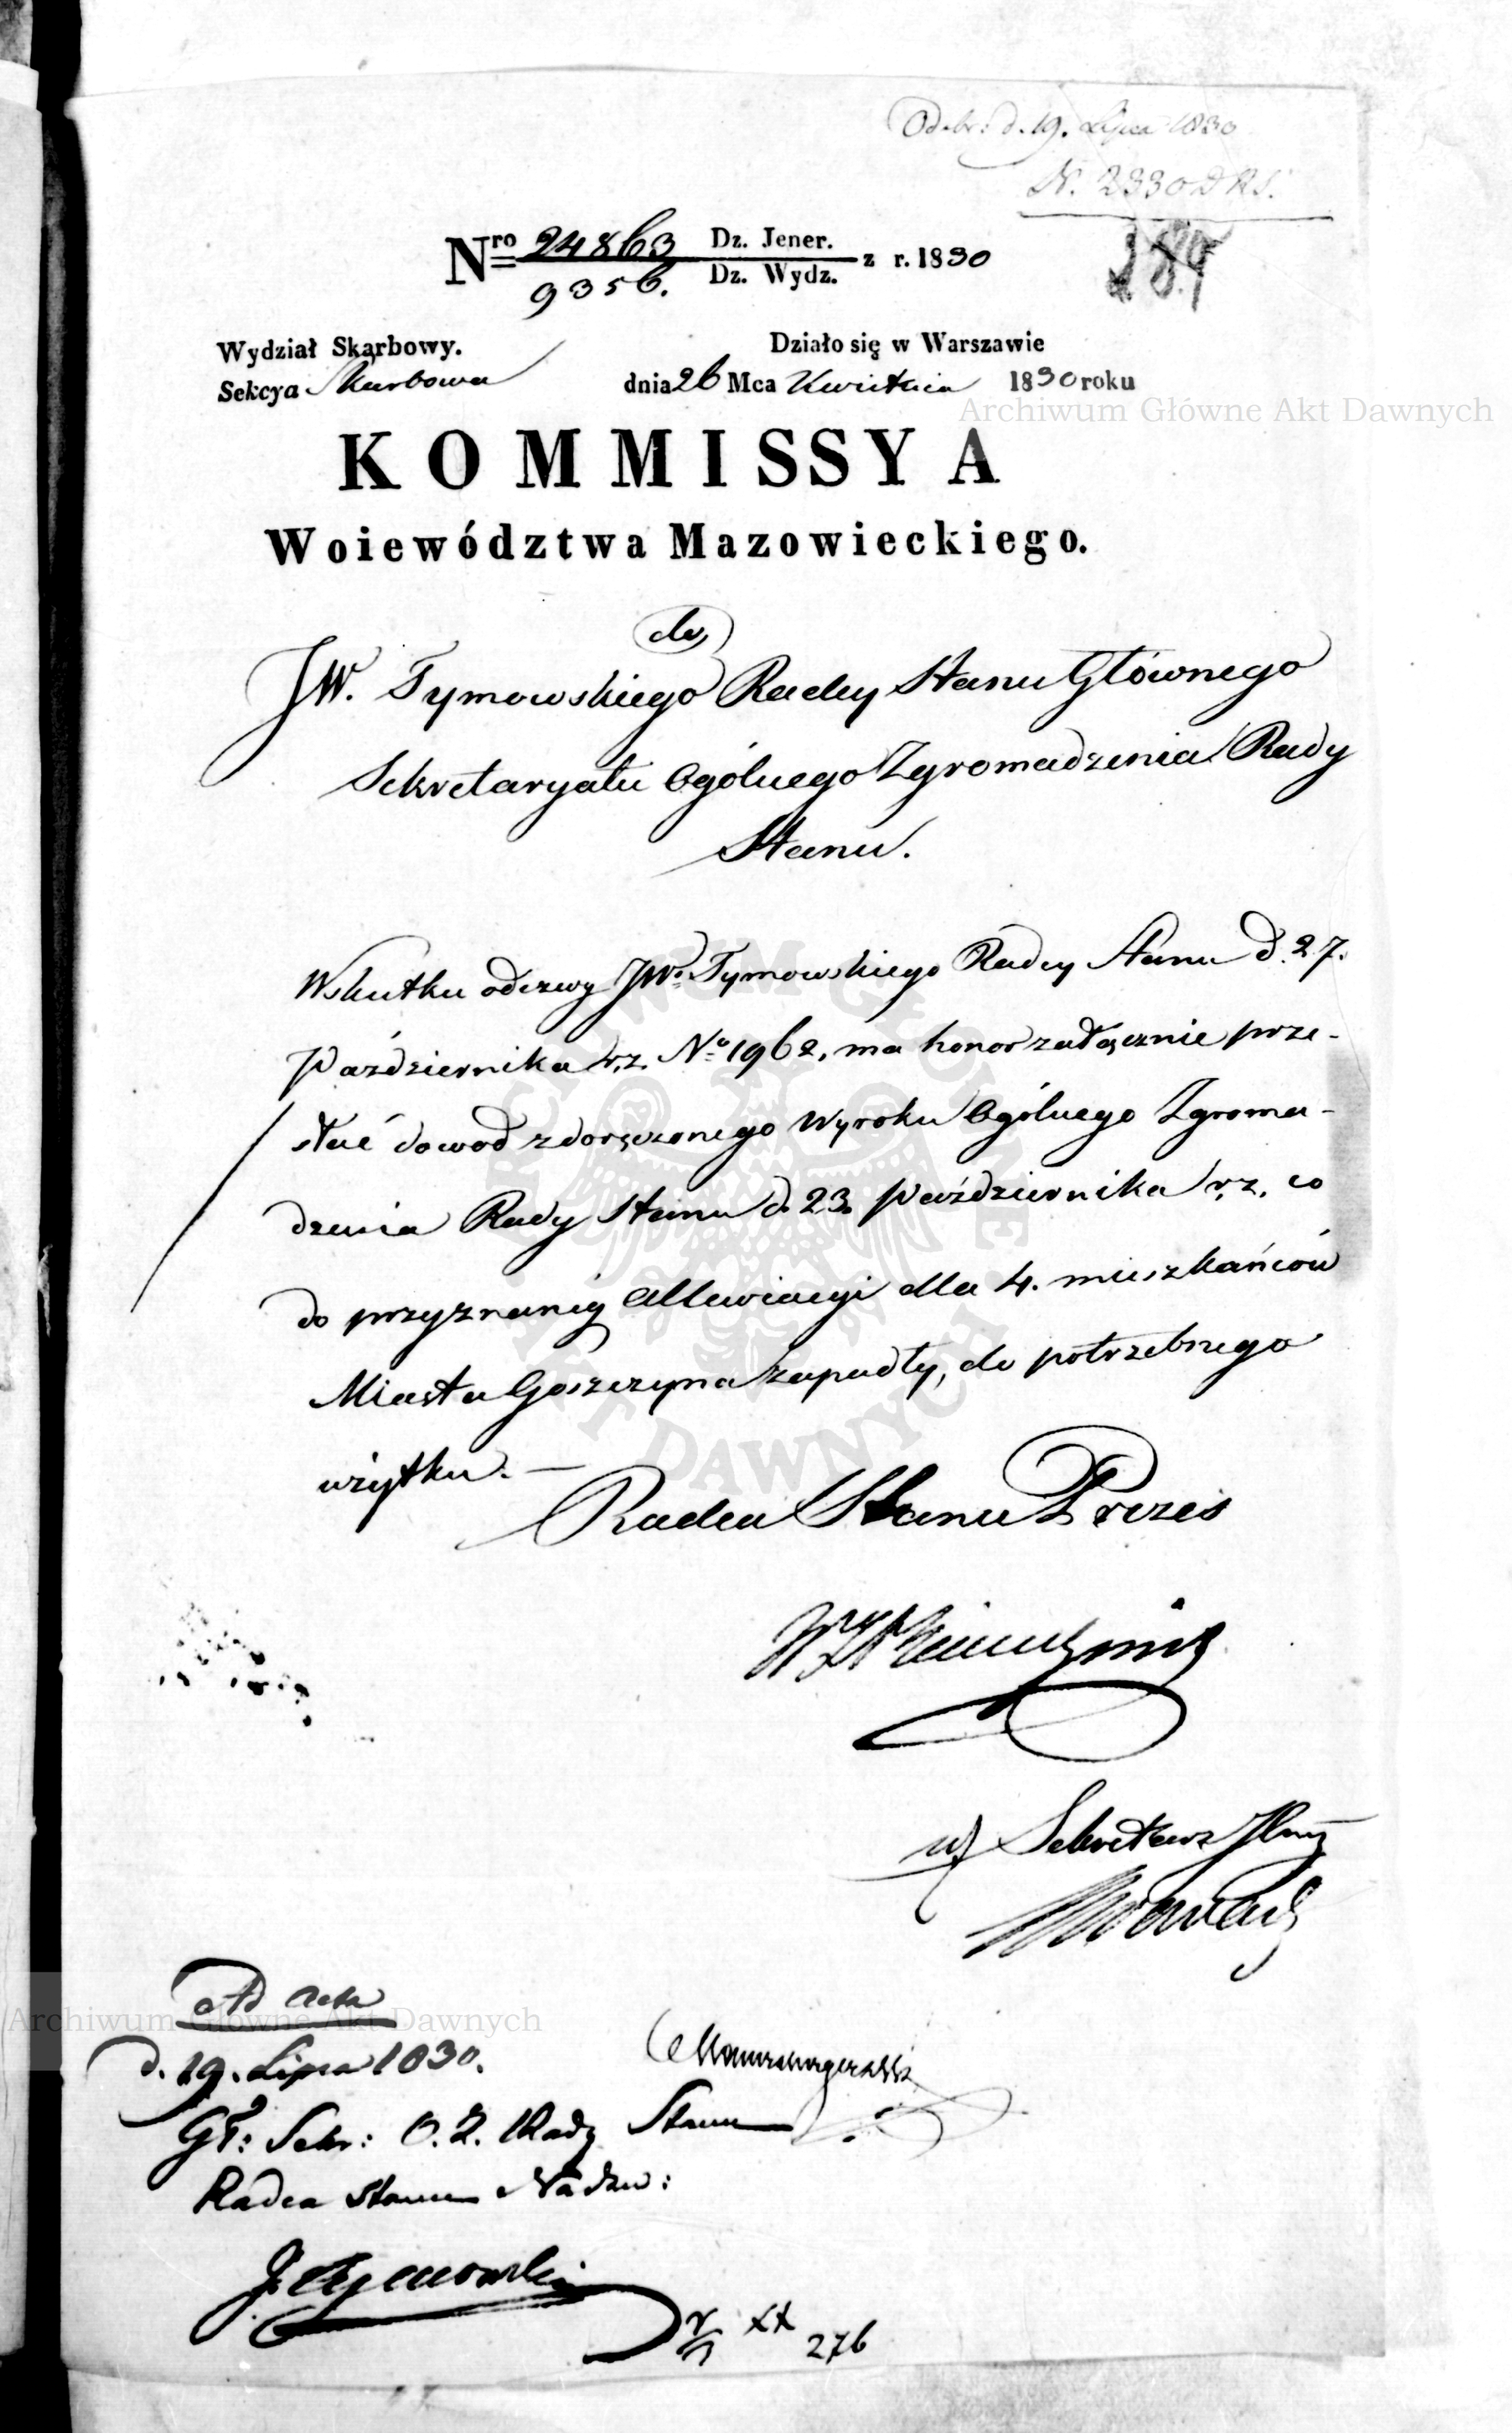 Odebr: d. 19. Lipca 1830
N. 2330 D RS.
189
Nro 24863 Dz. Jener. z r. 1830
9356. Dz. Wydz.
Wydział Skarbowy.
Działo się w Warszawie
Sekcya Skarbowa
dnia 26 Mca Kwietnia 1830 roku
Archiwum Główne Akt Dawnych
KOMMISSYA
Woiewództwa Mazowieckiego.
do
JW. Tymowskiego Radcy Stanu Głównego
Sekretaryatu Ogólnego Zgromadzenia Rady
Stanu.
Wskutku odezwy JW. Tymowskiego Radcy Stanu d. 27.
Października r.z. No 1962. ma honor załącznie prze-
słać dowod zdoręczonego Wyroku Ogólnego Zgroma-
dzenia Rady Stanu d. 23. Października r.z. co
do przyznaniey Allewiacyi dla 4. mieszkańców
Miasta Goszczyna zapadły, do potrzebnego
użytku. —
Radca Stanu Prezes
Sekretarz Jlny
Ad acta
Archiwum Główne Akt Dawnych
d. 19. Lipca 1830.
Gł: Sekr: O. Z. Rady Stanu
Radca Stanu Nadzw:
J. Tymowski
XX
276
ARCHIWUM GŁÓWNE AKT DAWNYCH